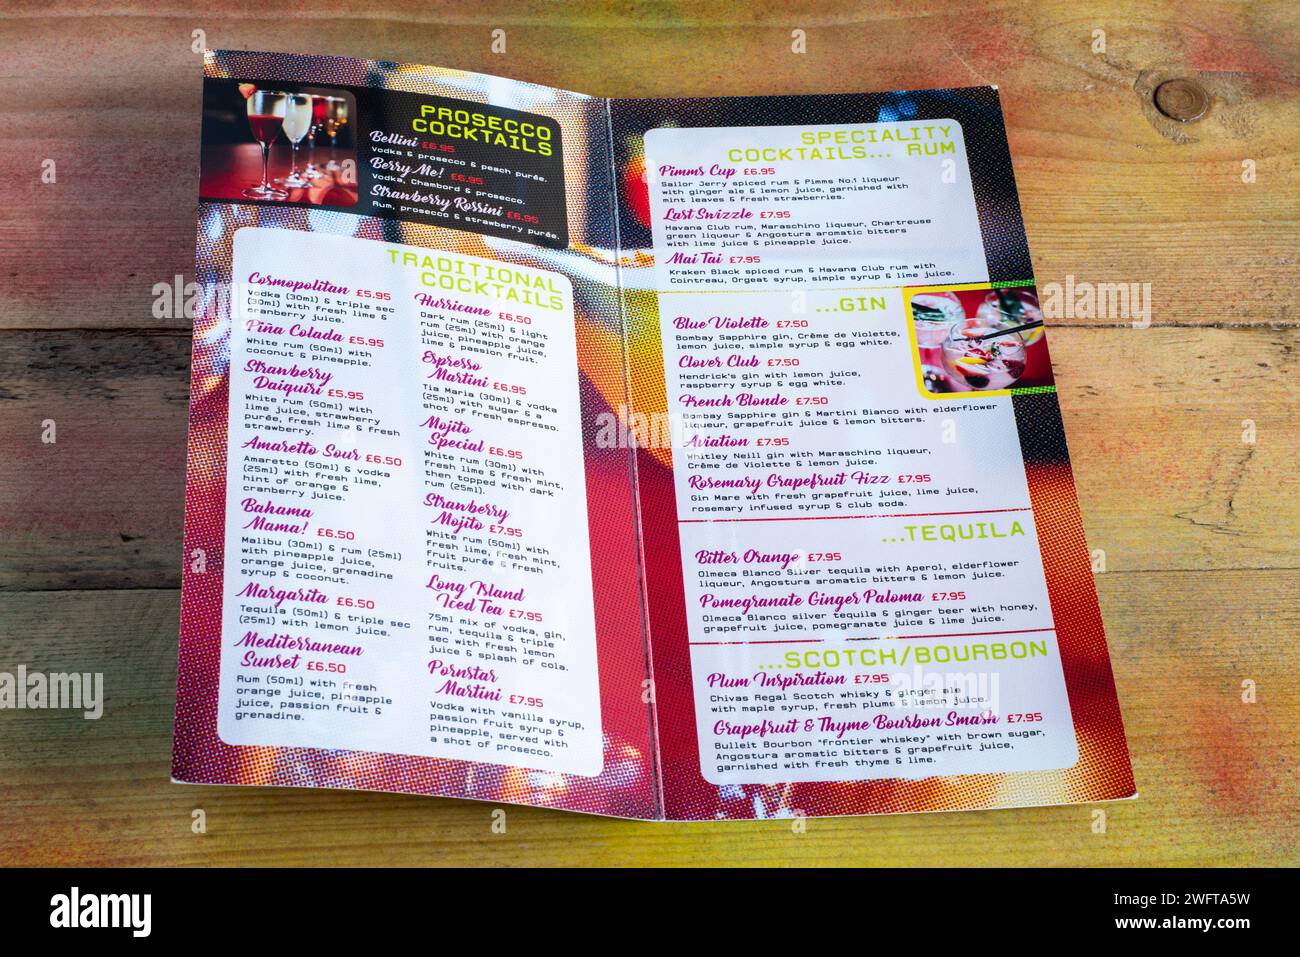 PROSECCO
COCKTAILS
Bellini £6.95
Vodka & prosecco & peach purée.
Berry Me! £6.95
Vodka, Chambord & prosecco.
Strawberry Rossini £6.95
Rum, prosecco & strawberry purée.
TRADITIONAL
COCKTAILS
Cosmopolitan £5.95
Vodka (30ml) & triple sec
(30ml) with fresh lime &
cranberry juice.
Piña Colada £5.95
White rum (50ml) with
coconut & pineapple.
Strawberry
Daiquiri £5.95
White rum (50ml) with
lime juice, strawberry
purée, fresh lime & fresh
strawberry.
Amaretto Sour £6.50
Amaretto (50ml) & vodka
(25ml) with fresh lime,
hint of orange &
cranberry juice.
Bahama
Mama! £6.50
Malibu (30ml) & rum (25ml)
with pineapple juice,
orange juice, grenadine
syrup & coconut.
Margarita £6.50
Tequila (50ml) & triple sec
(25ml) with lemon juice.
Mediterranean
Sunset £6.50
Rum (50ml) with fresh
orange juice, pineapple
juice, passion fruit &
grenadine.
Hurricane £6.50
Dark rum (25ml) & light
rum (25ml) with orange
juice, pineapple juice,
lime & passion fruit.
Espresso
Martini £6.95
Tia Maria (30ml) & vodka
(25ml) with sugar & a
shot of fresh espresso.
Mojito
Special £6.95
White rum (30ml) with
fresh lime & fresh mint,
then topped with dark
rum (25ml).
Strawberry
Mojito £7.95
White rum (50ml) with
fresh lime, fresh mint,
fruit purée & fresh
fruits.
Long Island
Iced Tea £7.95
75ml mix of vodka, gin,
rum, tequila & triple
sec with fresh lemon
juice & splash of cola.
Pornstar
Martini £7.95
Vodka with vanilla syrup,
passion fruit syrup &
pineapple, served with
a shot of prosecco.
SPECIALITY
COCKTAILS... RUM
Pimms Cup £6.95
Sailor Jerry spiced rum & Pimms No.1 liqueur
with ginger ale & lemon juice, garnished with
mint leaves & fresh strawberries.
Last Swizzle £7.95
Havana Club rum, Maraschino liqueur, Chartreuse
green liqueur & Angostura aromatic bitters
with lime juice & pineapple juice.
Mai Tai £7.95
Kraken Black spiced rum & Havana Club rum with
Cointreau, Orgeat syrup, simple syrup & lime juice.
...GIN
Blue Violette £7.50
Bombay Sapphire gin, Crême de Violette,
lemon juice, simple syrup & egg white.
Clover Club £7.50
Hendrick's gin with lemon juice,
raspberry syrup & egg white.
French Blonde £7.50
Bombay Sapphire gin & Martini Bianco with elderflower
liqueur, grapefruit juice & lemon bitters.
Aviation £7.95
Whitley Neill gin with Maraschino liqueur,
Crême de Violette & lemon juice.
Rosemary Grapefruit Fizz £7.95
Gin Mare with fresh grapefruit juice, lime juice,
rosemary infused syrup & club soda.
...TEQUILA
Bitter Orange £7.95
Olmeca Blanco Silver tequila with Aperol, elderflower
liqueur, Angostura aromatic bitters & lemon juice.
Pomegranate Ginger Paloma £7.95
Olmeca Blanco silver tequila & ginger beer with honey,
grapefruit juice, pomegranate juice & lime juice.
...SCOTCH/BOURBON
Plum Inspiration £7.95
Chivas Regal Scotch whisky & ginger ale
with maple syrup, fresh plums & lemon juice.
Grapefruit & Thyme Bourbon Smash £7.95
Bulleit Bourbon "frontier whiskey" with brown sugar,
Angostura aromatic bitters & grapefruit juice,
garnished with fresh thyme & lime.
alamy
Image ID: 2WFTA5W
www.alamy.com